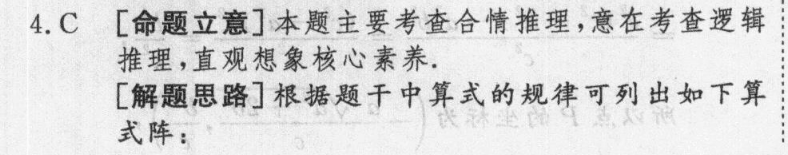 4.C [命题立意]本题主要考查合情推理,意在考查逻辑
推理,直观想象核心素养.
[解题思路]根据题干中算式的规律可列出如下算
式阵: